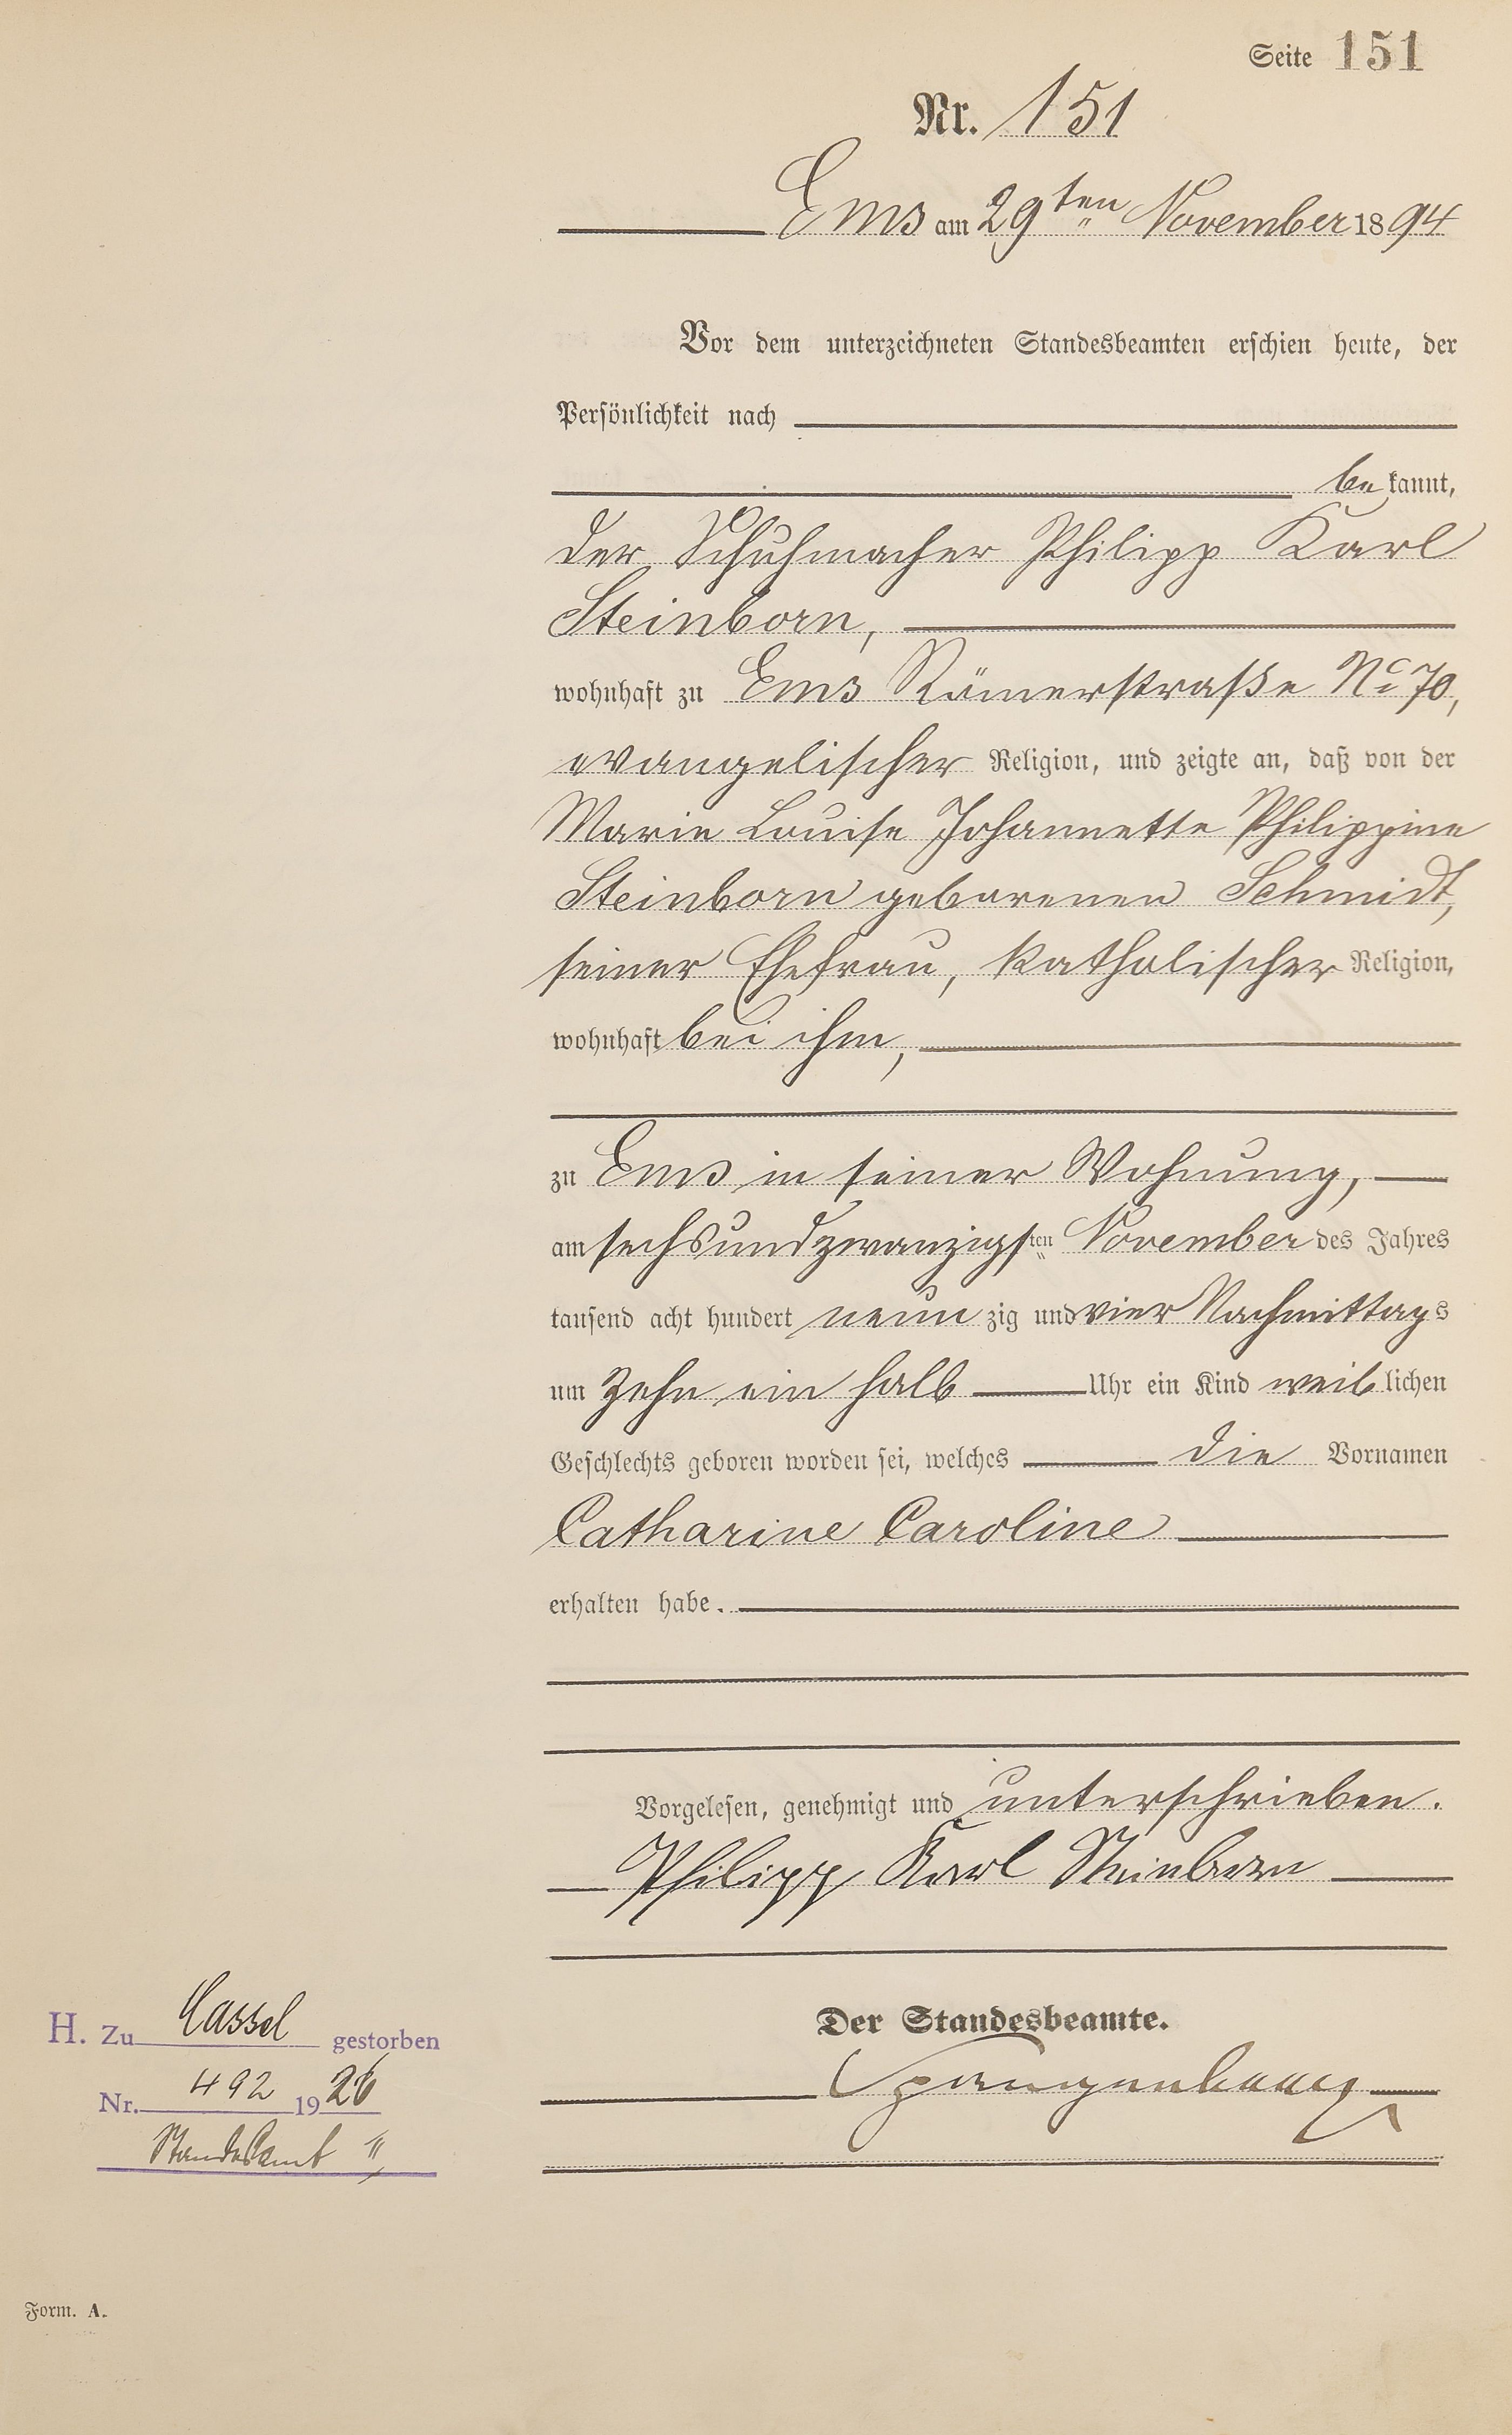 Seite 151
Nr. 151
Ems am 29ten November 1894
Vor dem unterzeichneten Standesbeamten erschien heute, der
Persönlichkeit nach
bekannt,
der Schuhmacher Philipp Karl
Steinborn,
wohnhaft zu Ems Römerstraße No 70,
evangelischer Religion, und zeigte an, daß von der
Marie Louise Johannette Philippine
Steinborn geborenen Schmidt,
seiner Ehefrau, katholischer Religion,
wohnhaft bei ihm,
zu Ems in seiner Wohnung,
am sechsundzwanzigsten November des Jahres
tausend acht hundert neunzig und vier Nachmittags
um zehn ein halb Uhr ein Kind weiblichen
Geschlechts geboren worden sei, welches die Vornamen
Catharine Caroline
erhalten habe.
Vorgelesen, genehmigt und unterschrieben.
Philipp Karl Steinborn
Der Standesbeamte.
H. Zu Cassel gestorben
Nr. 492 1926
Standesamt "
Form. A.